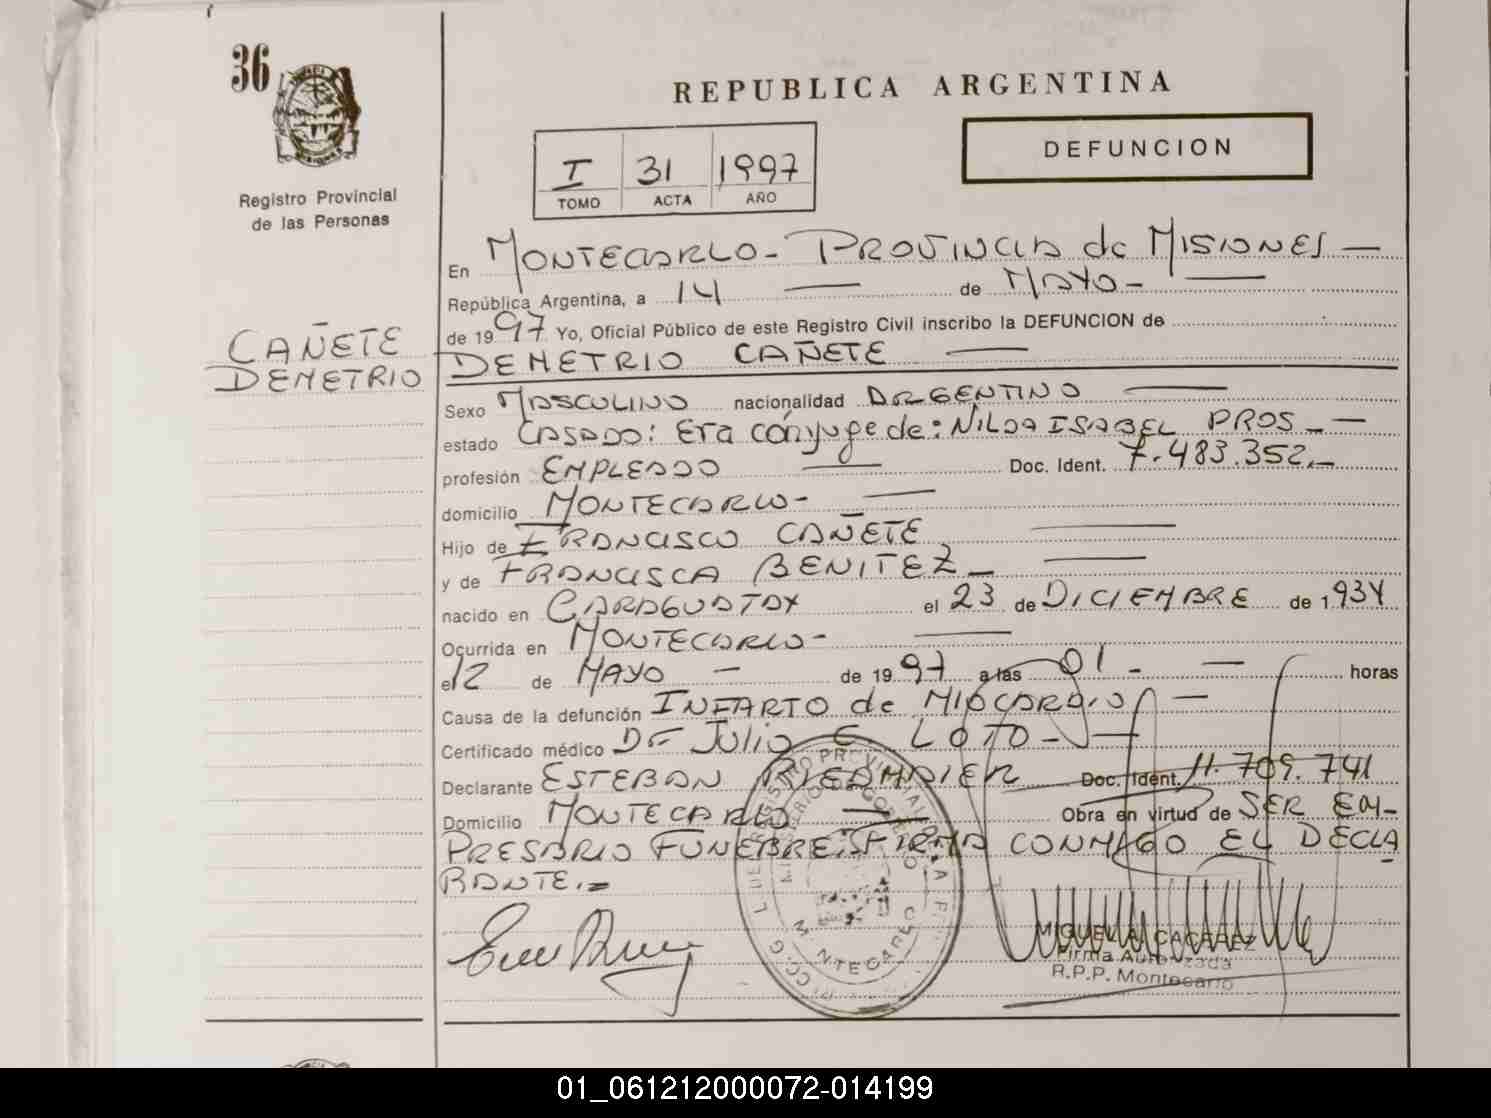 36
Registro Provincial
de las Personas
CAÑETE
DEMETRIO
REPUBLICA ARGENTINA
I 31 1997
TOMO ACTA AÑO
DEFUNCION
En MONTECARLO - PROVINCIA de MISIONES —
República Argentina, a 14 — de MAYO -
de 1997 Yo, Oficial Público de este Registro Civil inscribo la DEFUNCION de
DEMETRIO CAÑETE —
Sexo MASCULINO nacionalidad ARGENTINO —
estado CASADO: Era cónyuge de: NILDA ISABEL PROS - —
profesión EMPLEADO — Doc. Ident. 7.483.352.-
domicilio MONTECARLO - —
Hijo de FRANCISCO CAÑETE —
y de FRANCISCA BENITEZ - —
nacido en CARAGUATAY el 23 de DICIEMBRE de 1934
Ocurrida en MONTECARLO - —
el 12 de MAYO - de 1997 a las 01 - — horas
Causa de la defunción INFARTO de MIOCARDIO —
Certificado médico Dr Julio C. LOTO - —
Declarante ESTEBAN Doc. Ident. 11.709.741
Domicilio MONTECARLO — Obra en virtud de SER EM-
PRESARIO FUNEBRE. FIRMA CONMIGO EL DECLA
RANTE.=
MIGUEL A. CACAREZ
Firma Autorizada
R.P.P. Montecarlo
MONTECARLO
01_061212000072-014199